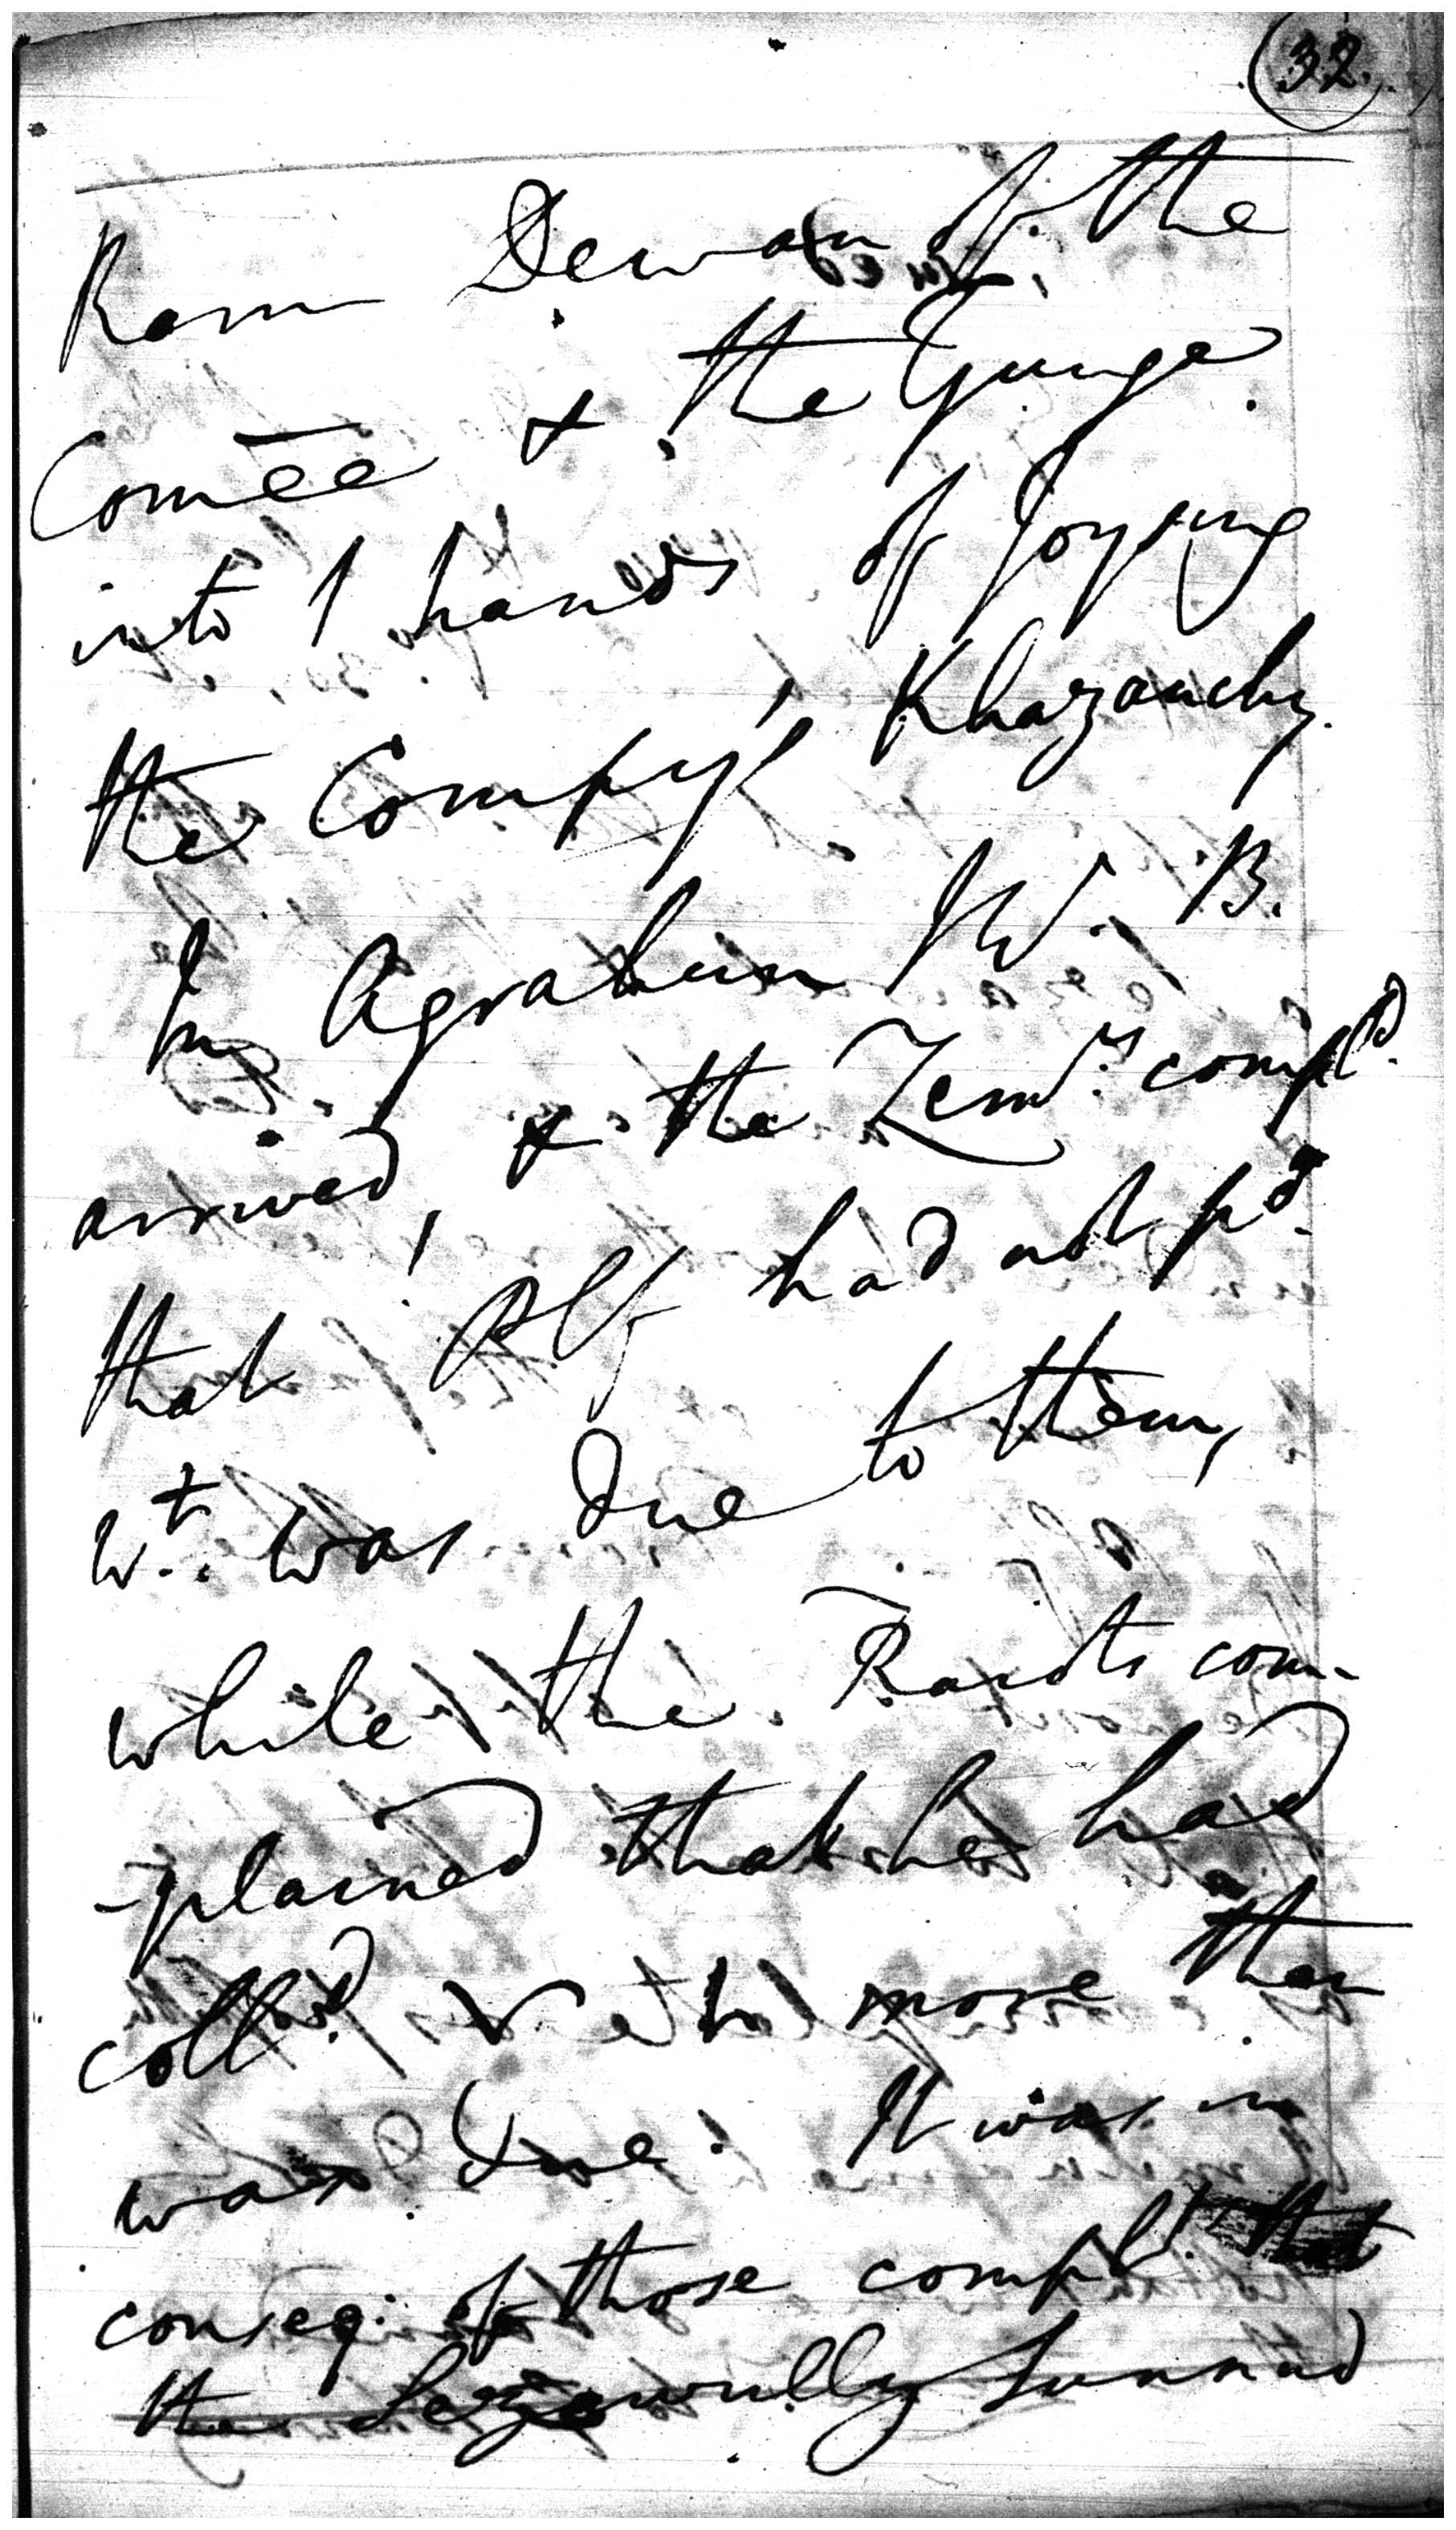 32.
Ram Dewan of the
Comēe & the Gunge
into / hands of Joysing
the Compy's Khazanchy.
In Agrahun W. B.
arrived, & the Zemrs. compld.
that had not pd.
wt. was due to them,
while the Raiots com-
-plained that he had
colld. more than
was due. It was in
conseq. of those complts. that
the Sezawully Sunnud